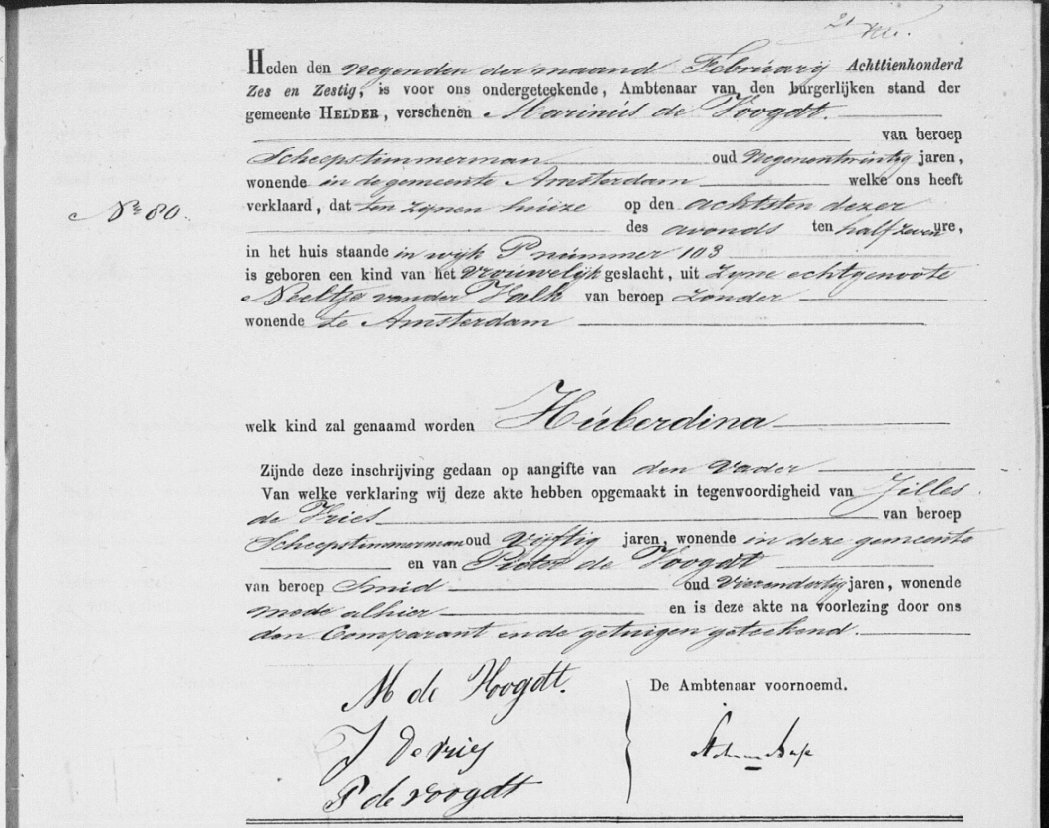 21
Heden den negenden der maand Februarij Achttienhonderd
Zes en Zestig, is voor ons ondergeteekende, Ambtenaar van den burgerlijken stand der
gemeente HELDER, verschenen Marinus de Voogdt.
van beroep
Scheepstimmerman oud Negenentwintig jaren,
wonende in de gemeente Amsterdam welke ons heeft
No 80. verklaard, dat ten zijnen huize op den achtsten dezer
des avonds ten half zeven ure,
in het huis staande in wijk P nummer 103
is geboren een kind van het Vrouwelijk geslacht, uit Zijne echtgenoote
Neeltje van der Valk van beroep Zonder
wonende te Amsterdam
welk kind zal genaamd worden Huberdina
Zijnde deze inschrijving gedaan op aangifte van den Vader
Van welke verklaring wij deze akte hebben opgemaakt in tegenwoordigheid van Jilles
de Vries van beroep
Scheepstimmerman oud Vijftig jaren, wonende in deze gemeente
en van Pieter de Voogdt
van beroep Smid oud Vierendertig jaren, wonende
mede alhier en is deze akte na voorlezing door ons
den Comparant en de getuigen geteekend.
M de Voogdt. De Ambtenaar voornoemd.
J de Vries
P de voogdt